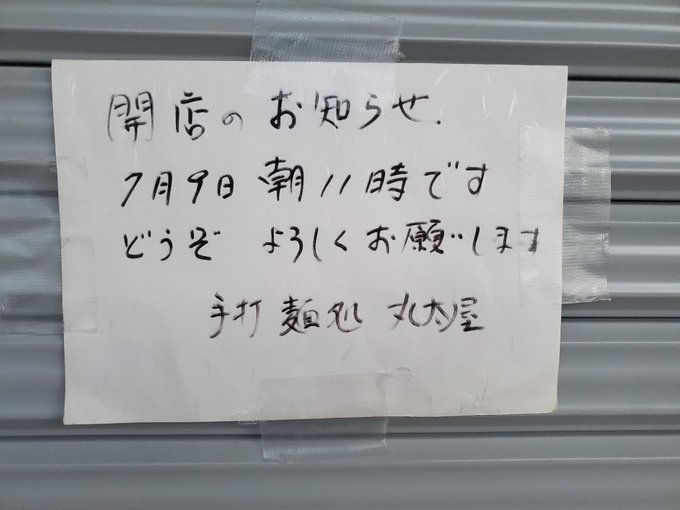 開店のお知らせ.
7月9日 朝11時です
どうぞ よろしくお願いします
手打 麺処 丸太屋